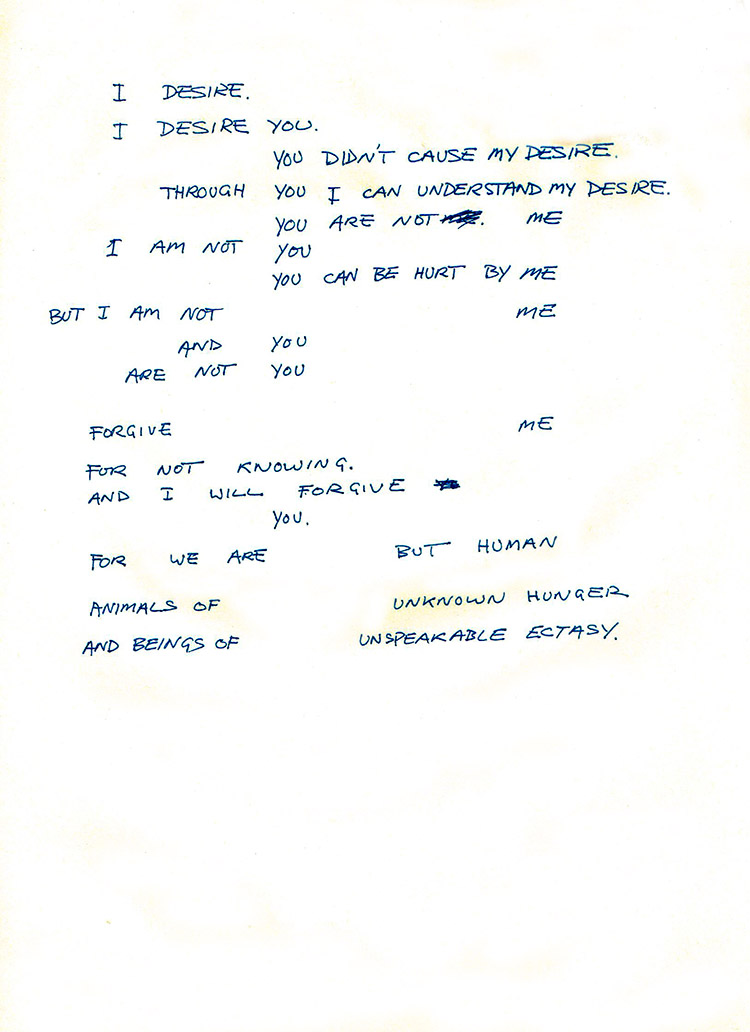 I DESIRE.
I DESIRE YOU.
YOU DIDN'T CAUSE MY DESIRE.
THROUGH YOU I CAN UNDERSTAND MY DESIRE.
YOU ARE NOT . ME
I AM NOT YOU
YOU CAN BE HURT BY ME
BUT I AM NOT ME
AND YOU
ARE NOT YOU
FORGIVE ME
FOR NOT KNOWING.
AND I WILL FORGIVE
YOU.
FOR WE ARE BUT HUMAN
ANIMALS OF UNKNOWN HUNGER
AND BEINGS OF UNSPEAKABLE ECTASY.